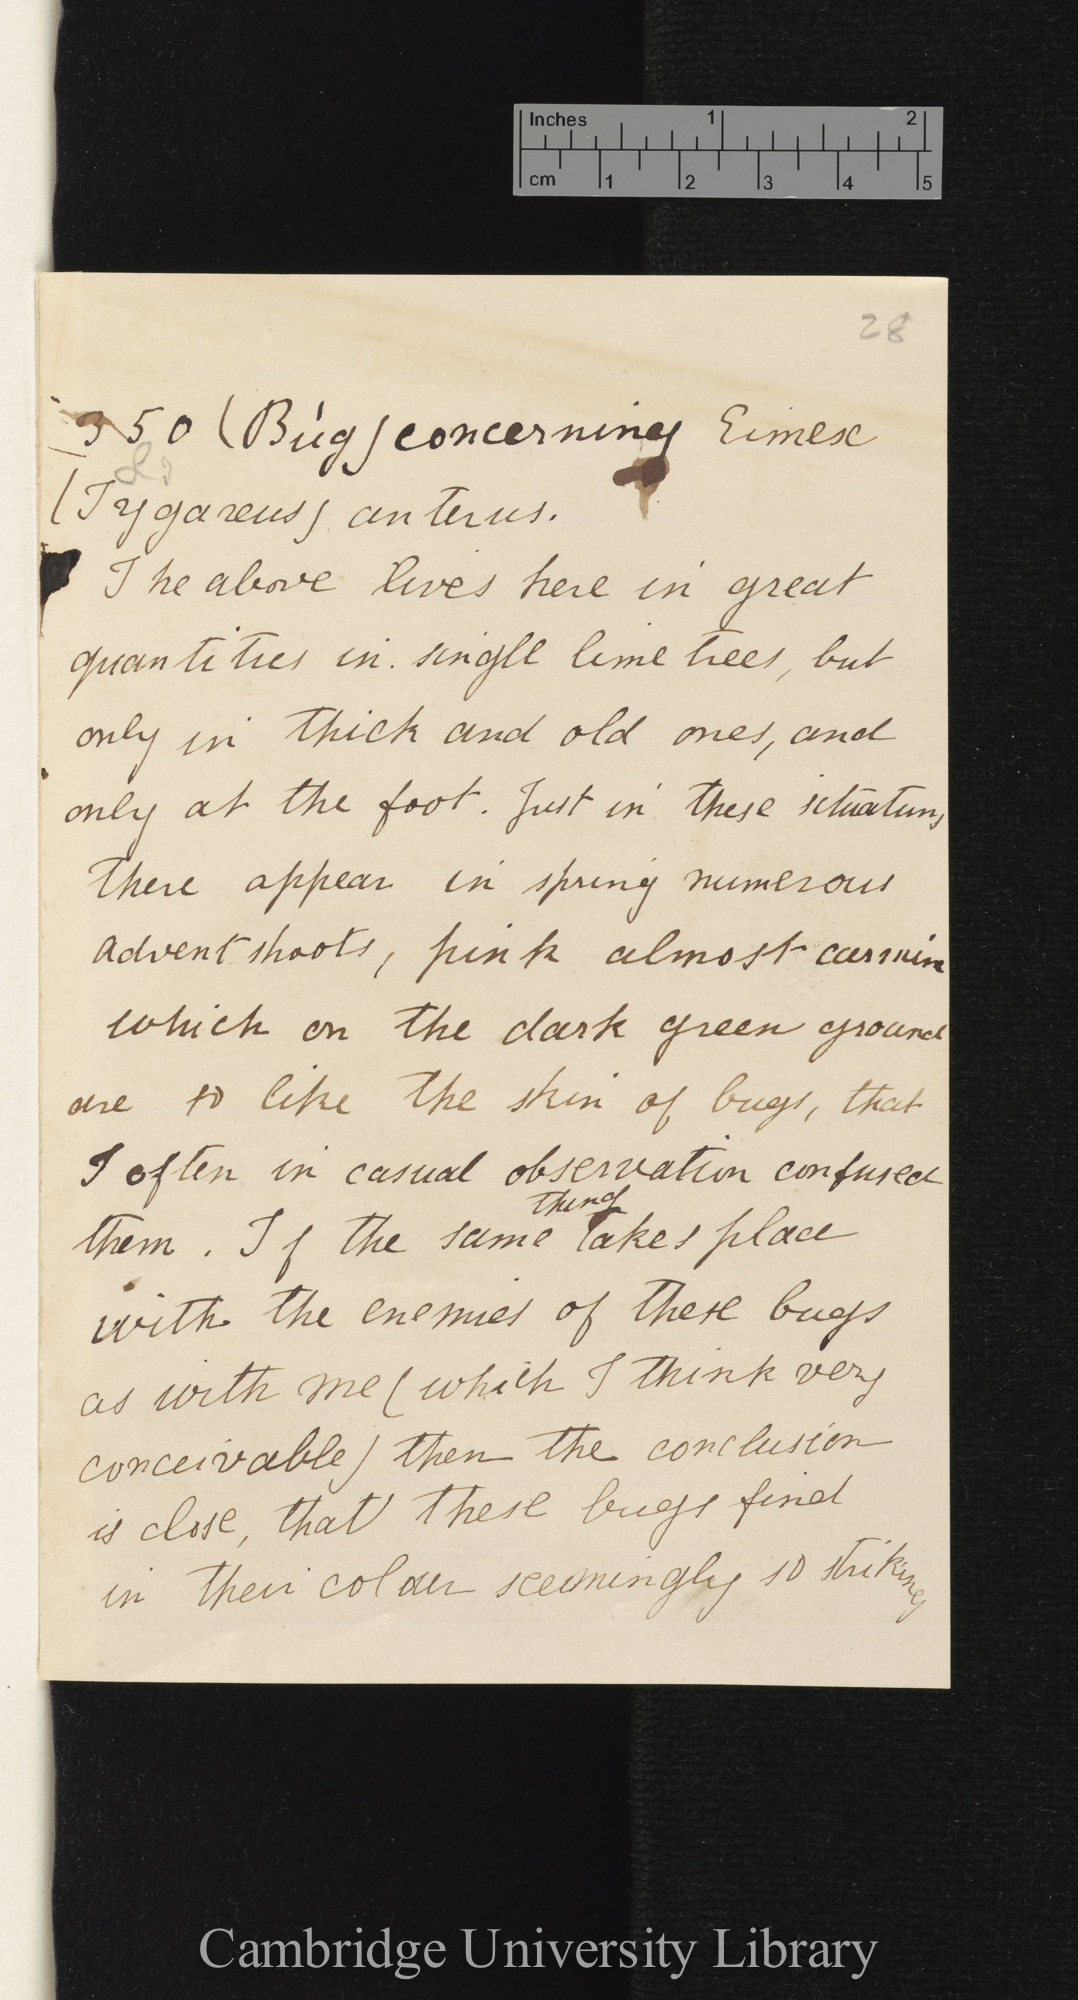 Inches 1 2
cm 1 2 3 4 5
28
350 (Bug) concerning Eimex
(Tygareus) anterus.
The above lives here in great
quantities in single lime trees, but
only in thick and old ones, and
only at the foot. Just in these situations
there appear in spring numerous
advent shoots, pink almost carmine
which on the dark green ground
are so like the skin of bugs, that
I often in casual observation confused
thing
them. If the same takes place
with the enemies of these bugs
as with me (which I think very
conceivable) then the conclusion
is close, that these bugs find
in their colour seemingly so striking
Cambridge University Library